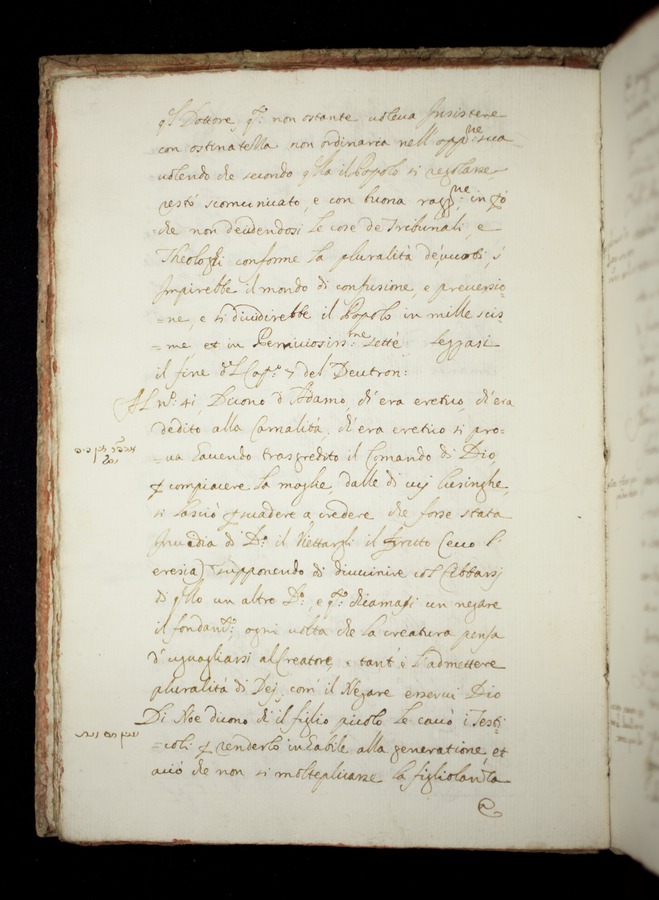 q.l Dottore, q.o non ostante voleva Insistere
con ostinatezza non ordinaria nell opp.ne sua
volendo che secondo q.lla il Popolo si regolasse
restò scomunicato, e con buona ragg.ne, in
che non decidendosi le cose de Tribunali, e
Theologhi conforme la pluralità de voti, s'
Impirebbe il mondo di confusione, e preversio=
=ne, e si dividirebbe il Popolo in mille scis=
=me et in Perniciosiss.me sette leggasi
il fine d'l Cap.o 7 del Deutron:
Al n.o 41, Dicono d Adamo, ch'era eretico, ch'era
dedito alla Carnalità, ch'era eretico si pro=
=va havendo trasgredito il Comando di Dio
p compiacere la moglie, dalle di cuj lusinghe,
si lasciò psuadere a credere che forse stata
Invidia di D.o il Viettargli il frutto (ecco l'
eresia) supponendo di divinire col Cibbarsj
di q.llo un altro D.o, e q.o chiamasi un negare
il fondam.to, ogni volta che la creatura pensa
d' uguagliarsi al Creatore, e tant' è l'admettere
pluralità di Dej, com' il Negare esservi Dio
Di Noe dicono ch' il figlio picolo le cavò i Testi
=coli p renderlo inhabile alla generatione, et
acciò che non si molteplicasse la figliolanza